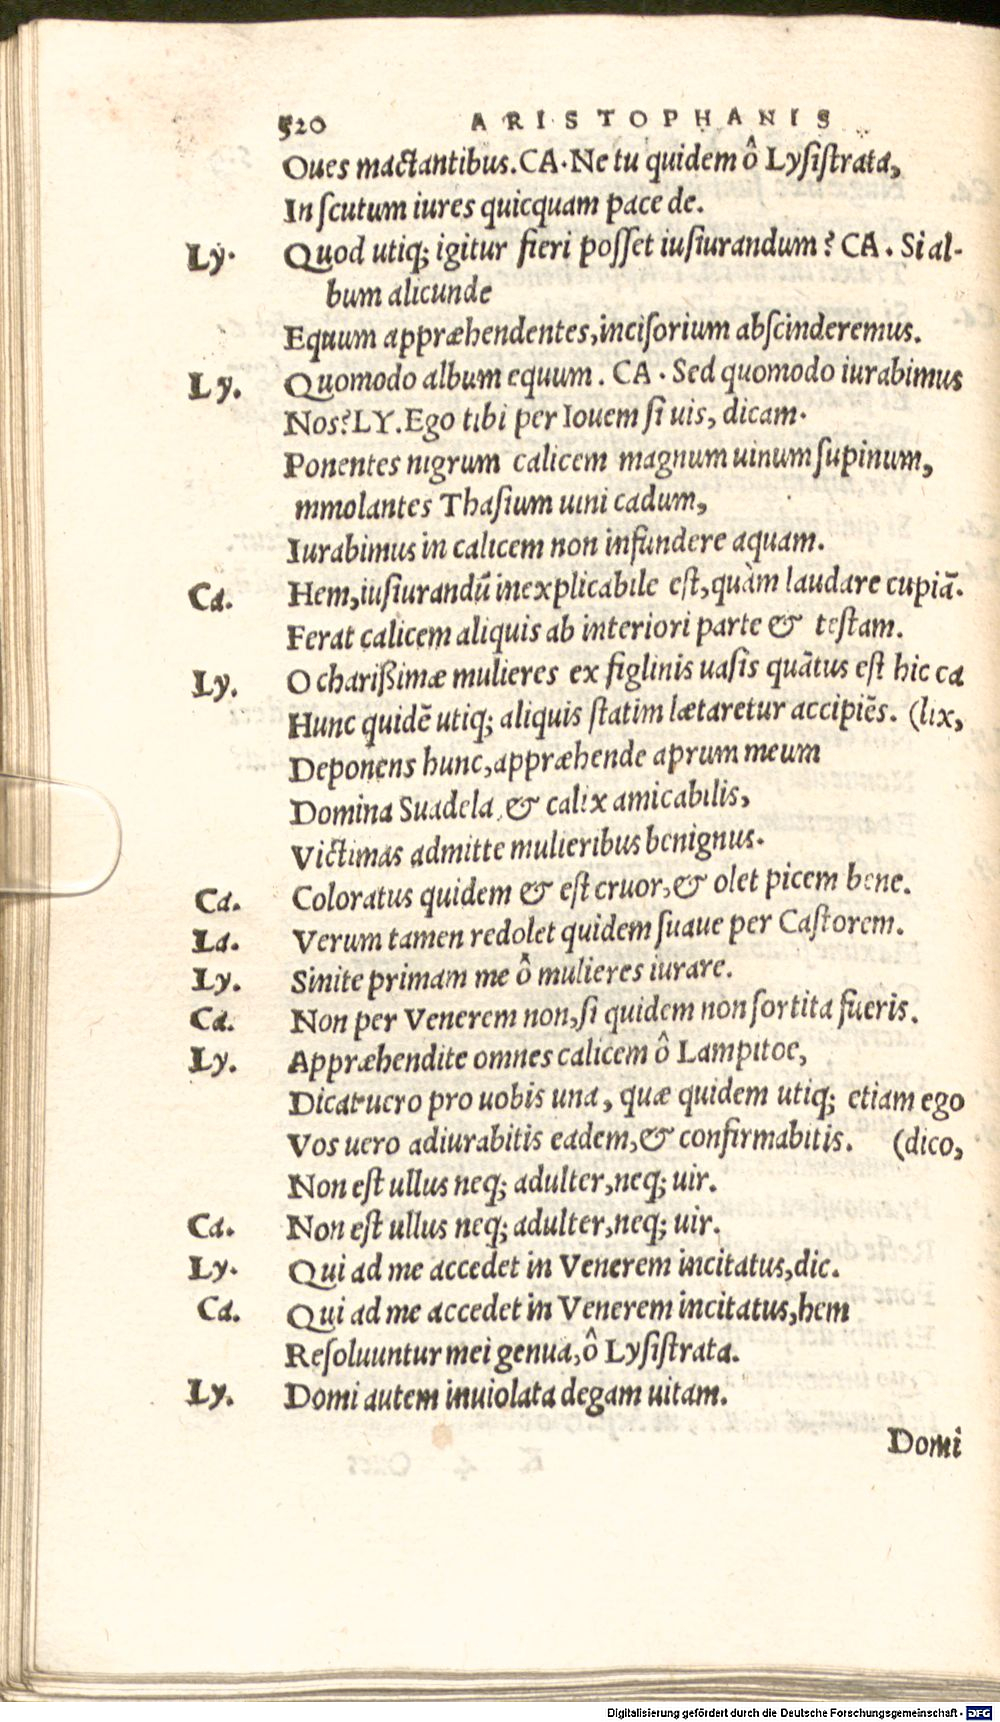 520 ARISTOPHANIS
Oues mactantibus. CA. Ne tu quidem ô Lysistrata,
In scutum iures quicquam pace de.
Ly. Quod utiq; igitur fieri posset iusiurandum? CA. Si al-
bum alicunde
Equum appræhendentes, incisorium abscinderemus.
Ly. Quomodo album equum. CA. Sed quomodo iurabimus
Nos? LY. Ego tibi per Iouem si uis, dicam.
Ponentes nigrum calicem magnum uinum supinum,
mmolantes Thasium uini cadum,
Iurabimus in calicem non infundere aquam.
Ca. Hem, iusiurandũ inexplicabile est, quàm laudare cupiã.
Ferat calicem aliquis ab interiori parte & testam.
Ly. O charißimæ mulieres ex figlinis uasis quãtus est hic ca
Hunc quidẽ utiq; aliquis statim lætaretur accipiẽs. (lix,
Deponens hunc, appræhende aprum meum
Domina Suadela, & calix amicabilis,
Victimas admitte mulieribus benignus.
Ca. Coloratus quidem & est cruor, & olet picem bene.
La. Verum tamen redolet quidem suaue per Castorem.
Ly. Sinite primam me ô mulieres iurare.
Ca. Non per Venerem non, si quidem non sortita fueris.
Ly. Appræhendite omnes calicem ô Lampitoe,
Dicat uero pro uobis una, quæ quidem utiq; etiam ego
Vos uero adiurabitis eadem, & confirmabitis. (dico,
Non est ullus neq; adulter, neq; uir.
Ca. Non est ullus neq; adulter, neq; uir.
Ly. Qui ad me accedet in Venerem incitatus, dic.
Ca. Qui ad me accedet in Venerem incitatus, hem
Resoluuntur mei genua, ô Lysistrata.
Ly. Domi autem inuiolata degam uitam.
Domi
Digitalisierung gefördert durch die Deutsche Forschungsgemeinschaft - DFG